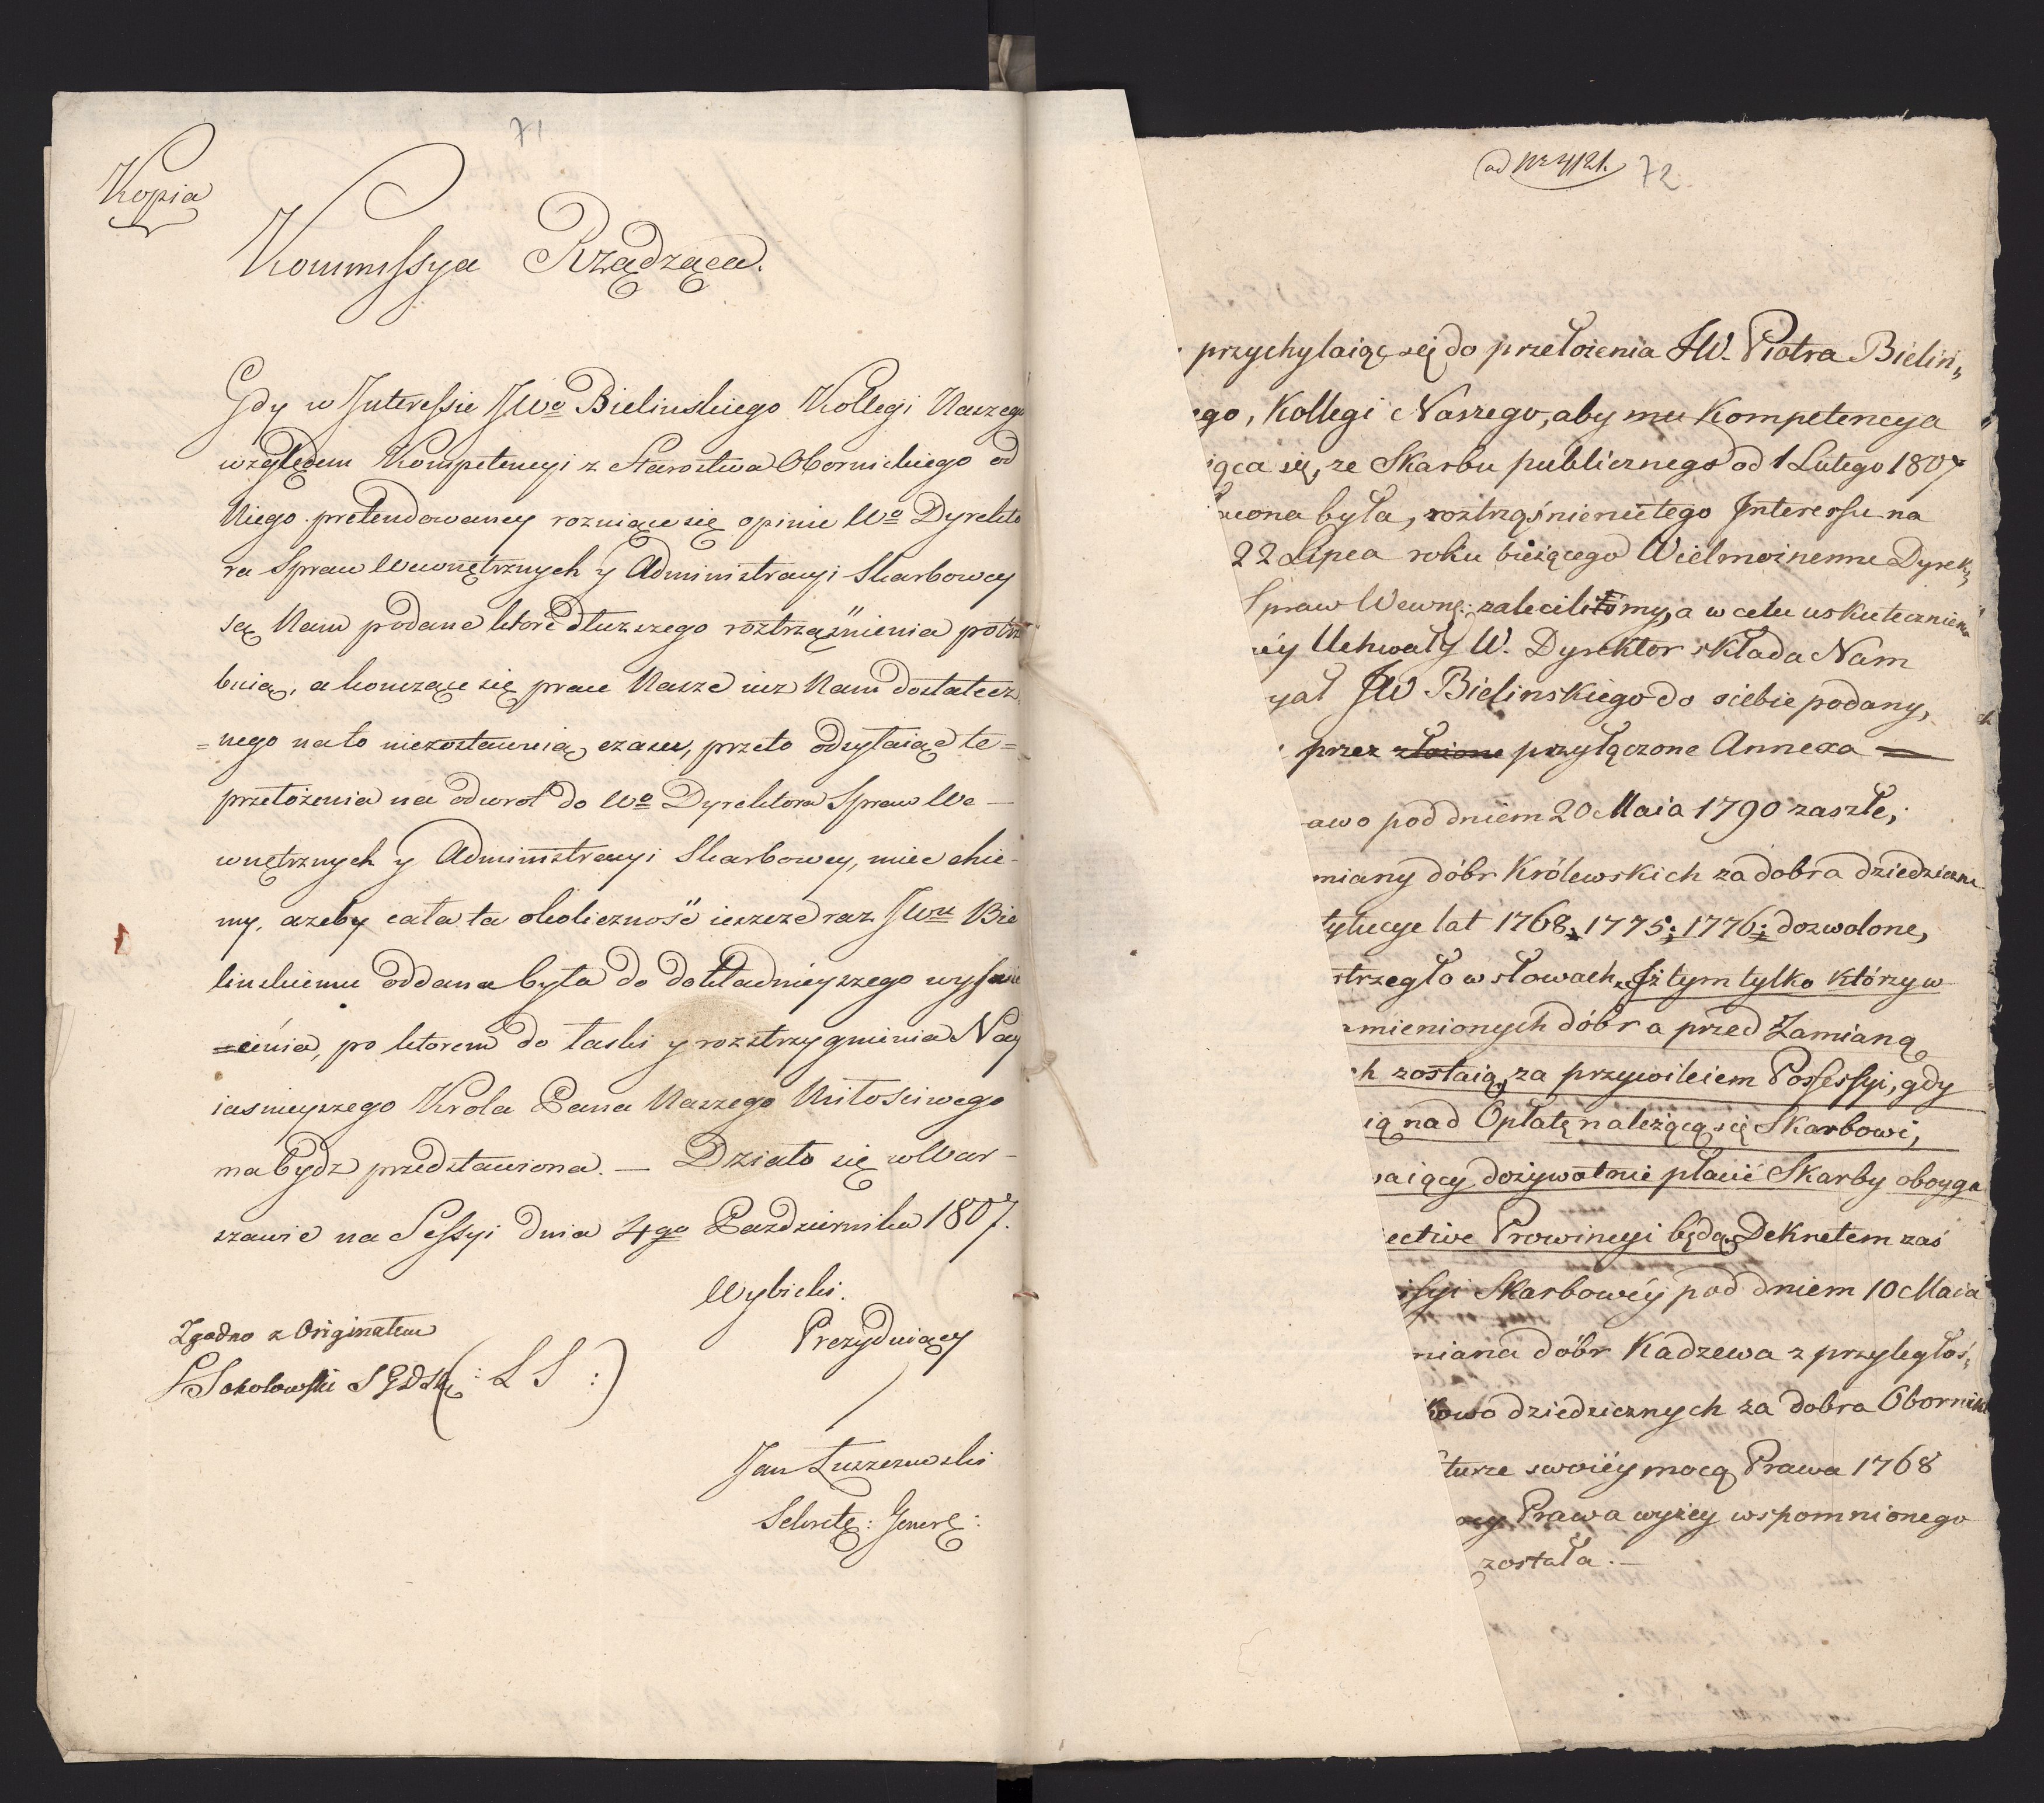 71
Kopia
Kommissya Rządząca.
Gdy w Interessie JWo Bielinskiego Kollegi Naszego
względem Kompetencyi z Starostwa Obornickiego od
Niego pretendowaney rozniące się opinie Wo Dyrekto
ra Spraw Wewnętrznych y Administracyi Skarbowey
są Nam podane ktore dłuzszego roztrząśnienia potrze
buią, a konczące się prace Nasze iuz Nam dostatecz
=nego nato niezostawuią czasu, przeto odsyłaiąc te=
przełożenia na odwrot do Wo Dyrektora Spraw We-
wnętrznych y Administracyi Skarbowey, miec chce-
my, azeby cała ta okoliczność ieszcze raz JWu Bie
linskiemu oddana była do dokładnieyszego wyświe
=cenia, po ktorem do łaski y rozstrzygnienia Nay
iasnieyszego Krola Pana Naszego Miłosciwego
ma bydz przedstawiona. — Działo się w War-
szawie na Sessyi dnia 4go Pazdziernika 1807.
Wybicki.
Prezyduiący
Zgodno z Originałem
Sokolowski (: L S :)
Jan Łuszczewski
Sekretę: Generę:
ad Nr 4121. 72
przychylaiąc się do przełożenia JW. Piotra Bieliń„
ego, Kollegi Naszego, aby mu Kompetencya
iąca się, ze Skarbu publicznego od 1 Lutego 1807
cona była, roztrząśnienie tego Interessu na
22 Lipca roku bieżącego Wielmożnemu Dyrek„
Spraw Wewnę: zaleciliśmy, a w celu uskutecznienia
ey Uchwały W. Dyrektor składa Nam
yał JW Bielinskiego do siebie podany,
przez złożone przyłączone Annexa —
awo pod dniem 20 Maia 1790 zaszłe,
miany dóbr Królewskich za dobra dziedziczne
tytucye lat 1768; 1775; 1776; dozwolone,
strzegło w słowach „Iż tym tylko którzy w
mienionych dóbr a przed Zamianą
ch zostaią, za przywileiem Possessyi, gdy
ią nad Opłatę należącą się Skarbowi,
aiący dożywotnie płacić Skarby oboyga
ective Prowincyi będą„ Dekretem zaś
issyi Skarbowéy pod dniem 10 Maia
miana dóbr Kadzewa z przyległoś„
owo dziedzicznych za dobra Obornick
turze swoiéy mocą Prawa 1768
ocy Prawa wyżey wspomnionego
została. —